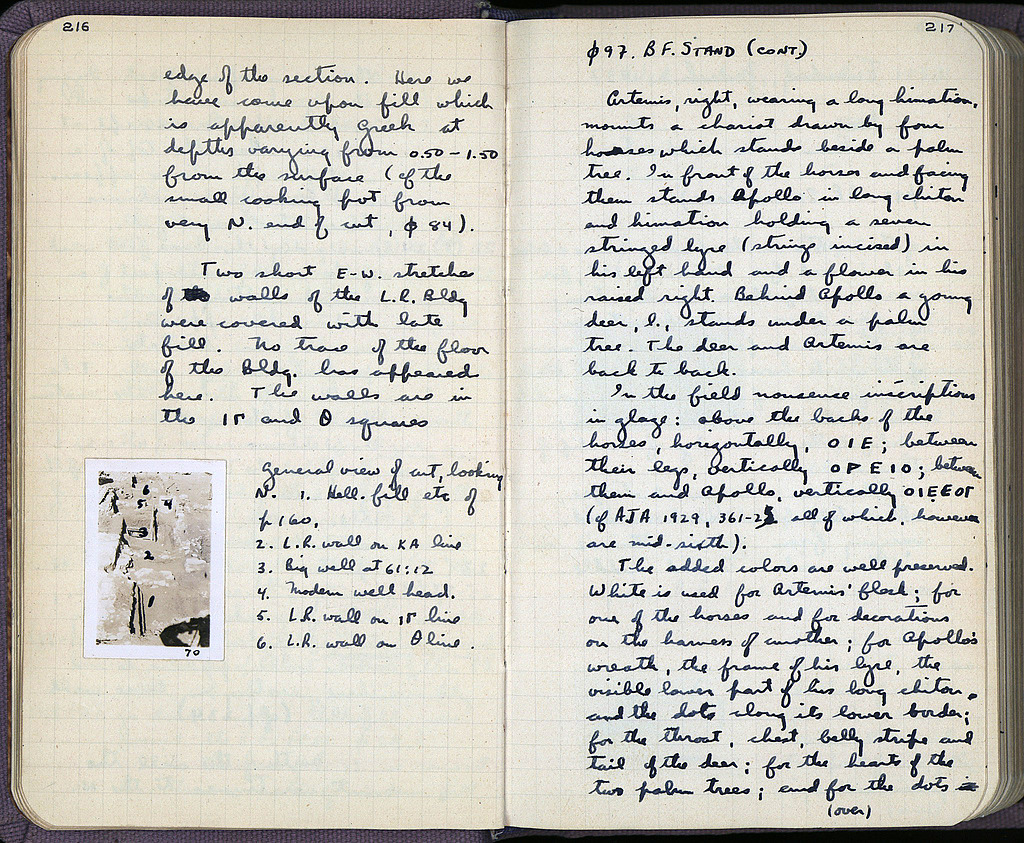 216
edge of the section. Here we
have come upon fill which
is apparently Greek at
depths varying from 0.50 - 1.50
from the surface (cf the
small cooking pot from
very N. end of cut, φ 84).
Two short E-W. stretches
of walls of the L.R. Bldg
were covered with late
fill. No trace of the floor
of the Bldg. has appeared
here. The walls are in
the ΙΓ and Θ squares
General view of cut, looking
N. 1. Hell. fill etc of
p 160.
2. L.R. wall on KA line
3. Big well at 61:12
4. Modern well head.
5. L.R. wall on ΙΓ line
6. L.R. wall on Θ line.
6
5 4
3
2
1
70
217
φ97. B F. STAND (CONT.)
Artemis, right, wearing a long himation,
mounts a chariot drawn by four
horses which stands beside a palm
tree. In front of the horses and facing
them stands Apollo in long chiton
and himation holding a seven
stringed lyre (strings incised) in
his left hand and a flower in his
raised right. Behind Apollo a young
deer, l., stands under a palm
tree. The deer and Artemis are
back to back.
In the field nonsense inscriptions
in glaze: above the backs of the
horses, horizontally, OIE; between
their legs, vertically OPEIO; between
them and Apollo, vertically OIEEOΓ
(cf AJA 1929, 361-2 all of which, however
are mid-sixth).
The added colors are well preserved.
White is used for Artemis' flesh; for
one of the horses and for decorations
on the harness of another; for Apollo's
wreath, the frame of his lyre, the
visible lower part of his long chiton,
and the dots along its lower border;
for the throat, chest, belly stripe and
tail of the deer; for the hearts of the
two palm trees; and for the dots
(over)